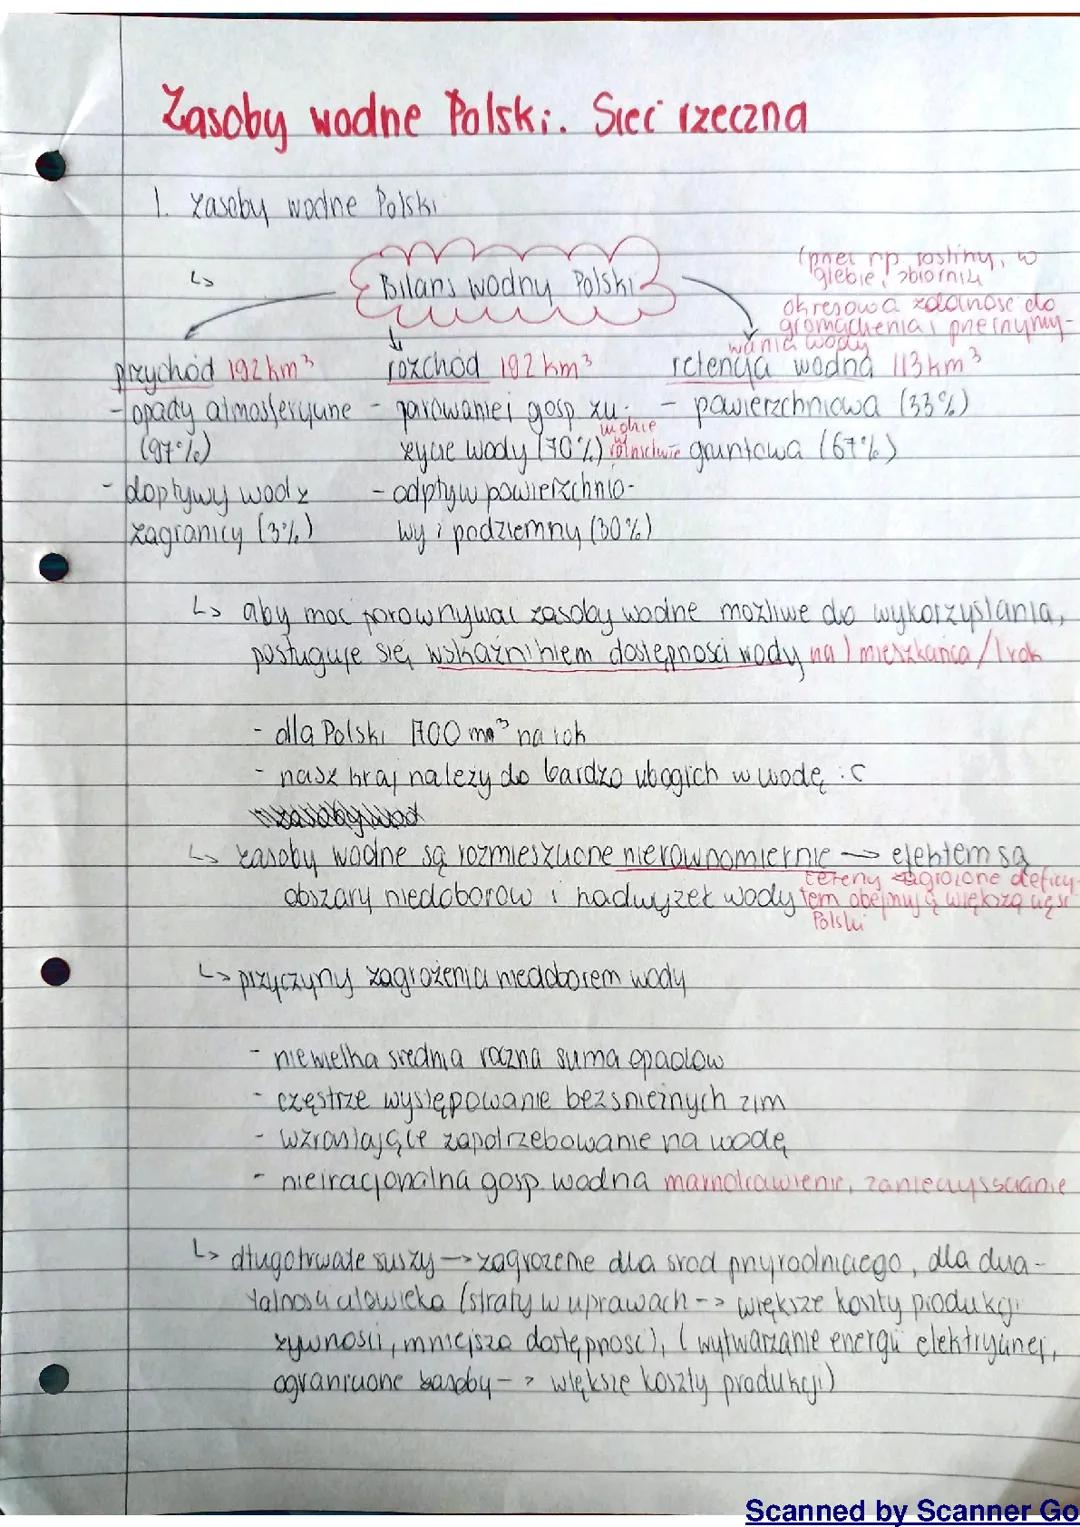 Zasoby wodne Polski. Sieć rzeczna
1. Zasoby wodne Polski
↳ Bilans wodny Polski
(przez np rośliny, w
glebie, zbiorniki
okresowa zdolność do
gromadzenia i przetrzymy-
wania wody
przychód 192 km³ rozchód 192 km³ retencja wodna 113 km³
- opady atmosferyczne - parowanie i gosp zu- - powierzchniowa (33%)
(97%) życie wody (70%) rolnictwie gruntowa (67%)
- dopływy wody z - odpływ powierzchnio-
zagranicy (3%) wy i podziemny (30%)
↳ aby móc porównywać zasoby wodne możliwe do wykorzystania,
posługuje się wskaźnikiem dostępności wody na 1 mieszkańca/1rok
- dla Polski 1700 m³ na rok
- nasz kraj należy do bardzo ubogich w wodę :c
↳ zasoby wodne są rozmieszczone nierównomiernie → efektem są
obszary niedoborów i nadwyżek wody
tereny zagrożone deficy-
tem obejmują większą część
Polski
↳ przyczyny zagrożenia niedoborem wody
- niewielka średnia roczna suma opadów
- częstrze występowanie bezśnieżnych zim
- wzrastające zapotrzebowanie na wodę
- nieracjonalna gosp. wodna marnotrawienie, zanieczyszczanie
↳ długotrwałe suszy → zagrożenie dla środ przyrodniczego, dla dzia-
łalności człowieka (straty w uprawach -> większe koszty produkcji
żywności, mniejsza dostępność), (wytwarzanie energii elektrycznej,
ograniczone zasoby -> większe koszty produkcji)
Scanned by Scanner Go